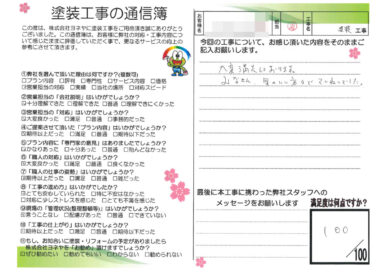 塗装工事の通信簿
この度は、株式会社ヨネヤに塗装工事をご用命頂き誠にありがとう
ございました。この通信簿は、お客様に弊社の対応・工事内容につい
て感じたままに評価していただく事で、更なるサービスの向上の
参考にさせて頂きます。
①弊社を選んで頂いた理由は何ですか?(複数可)
□プラン内容 □評判 □専門店 □サービス内容 □価格
□営業担当の対応 □実績 □当社の場所 □対応スピード
②営業担当の「会社説明」はいかがでしたか?
□十分理解できた □理解できた □普通 □理解できにくかった
③営業担当の対応はいかがでしたか?
□大満足 □満足 □普通 □事務的だった
④ご提案させて頂いた「プラン内容」はいかがでしたか?
□期待以上だった □満足 □期待通り □期待以下
⑤プラン内容に「専門家の意見」はありましたでしょうか?
□かなりあった □十分あった □普通 □殆んどなかった
⑥「職人の対応」はいかがでしたか?
□大変良かった □満足 □良くなかった
⑦「職人の仕事の姿勢」はいかがでしたか?
□期待以上だった □満足 □普通 □期待以下
⑧「工事の進め方」はいかがでしたか?
□とても安心していられた □特に不安はなかった
□対応に少しストレスを感じた □とても不満を感じた
⑨現場の「管理状況(整理整頓等)」はいかがでしたか?
□言うことなし □配慮があった □普通 □できていない
⑩「工事の仕上がり」はいかがでしたか?
□期待以上だった □満足 □期待通り □期待以下
⑪もし、お知合いに塗装・リフォームの予定がありましたら
株式会社ヨネヤを「お勧め」頂けますでしょうか?
□ぜひ勧めたい □勧めてもいい □わからない □勧められない
お客様名
様
工事名
塗装 工事
今回の工事について、お感じ頂いた内容をそのままご
記入お願いします。
大変満足しております。
みなさん
最後に本工事に携わった弊社スタッフへの
メッセージをお願いします
満足度は何点ですか?
100
/100